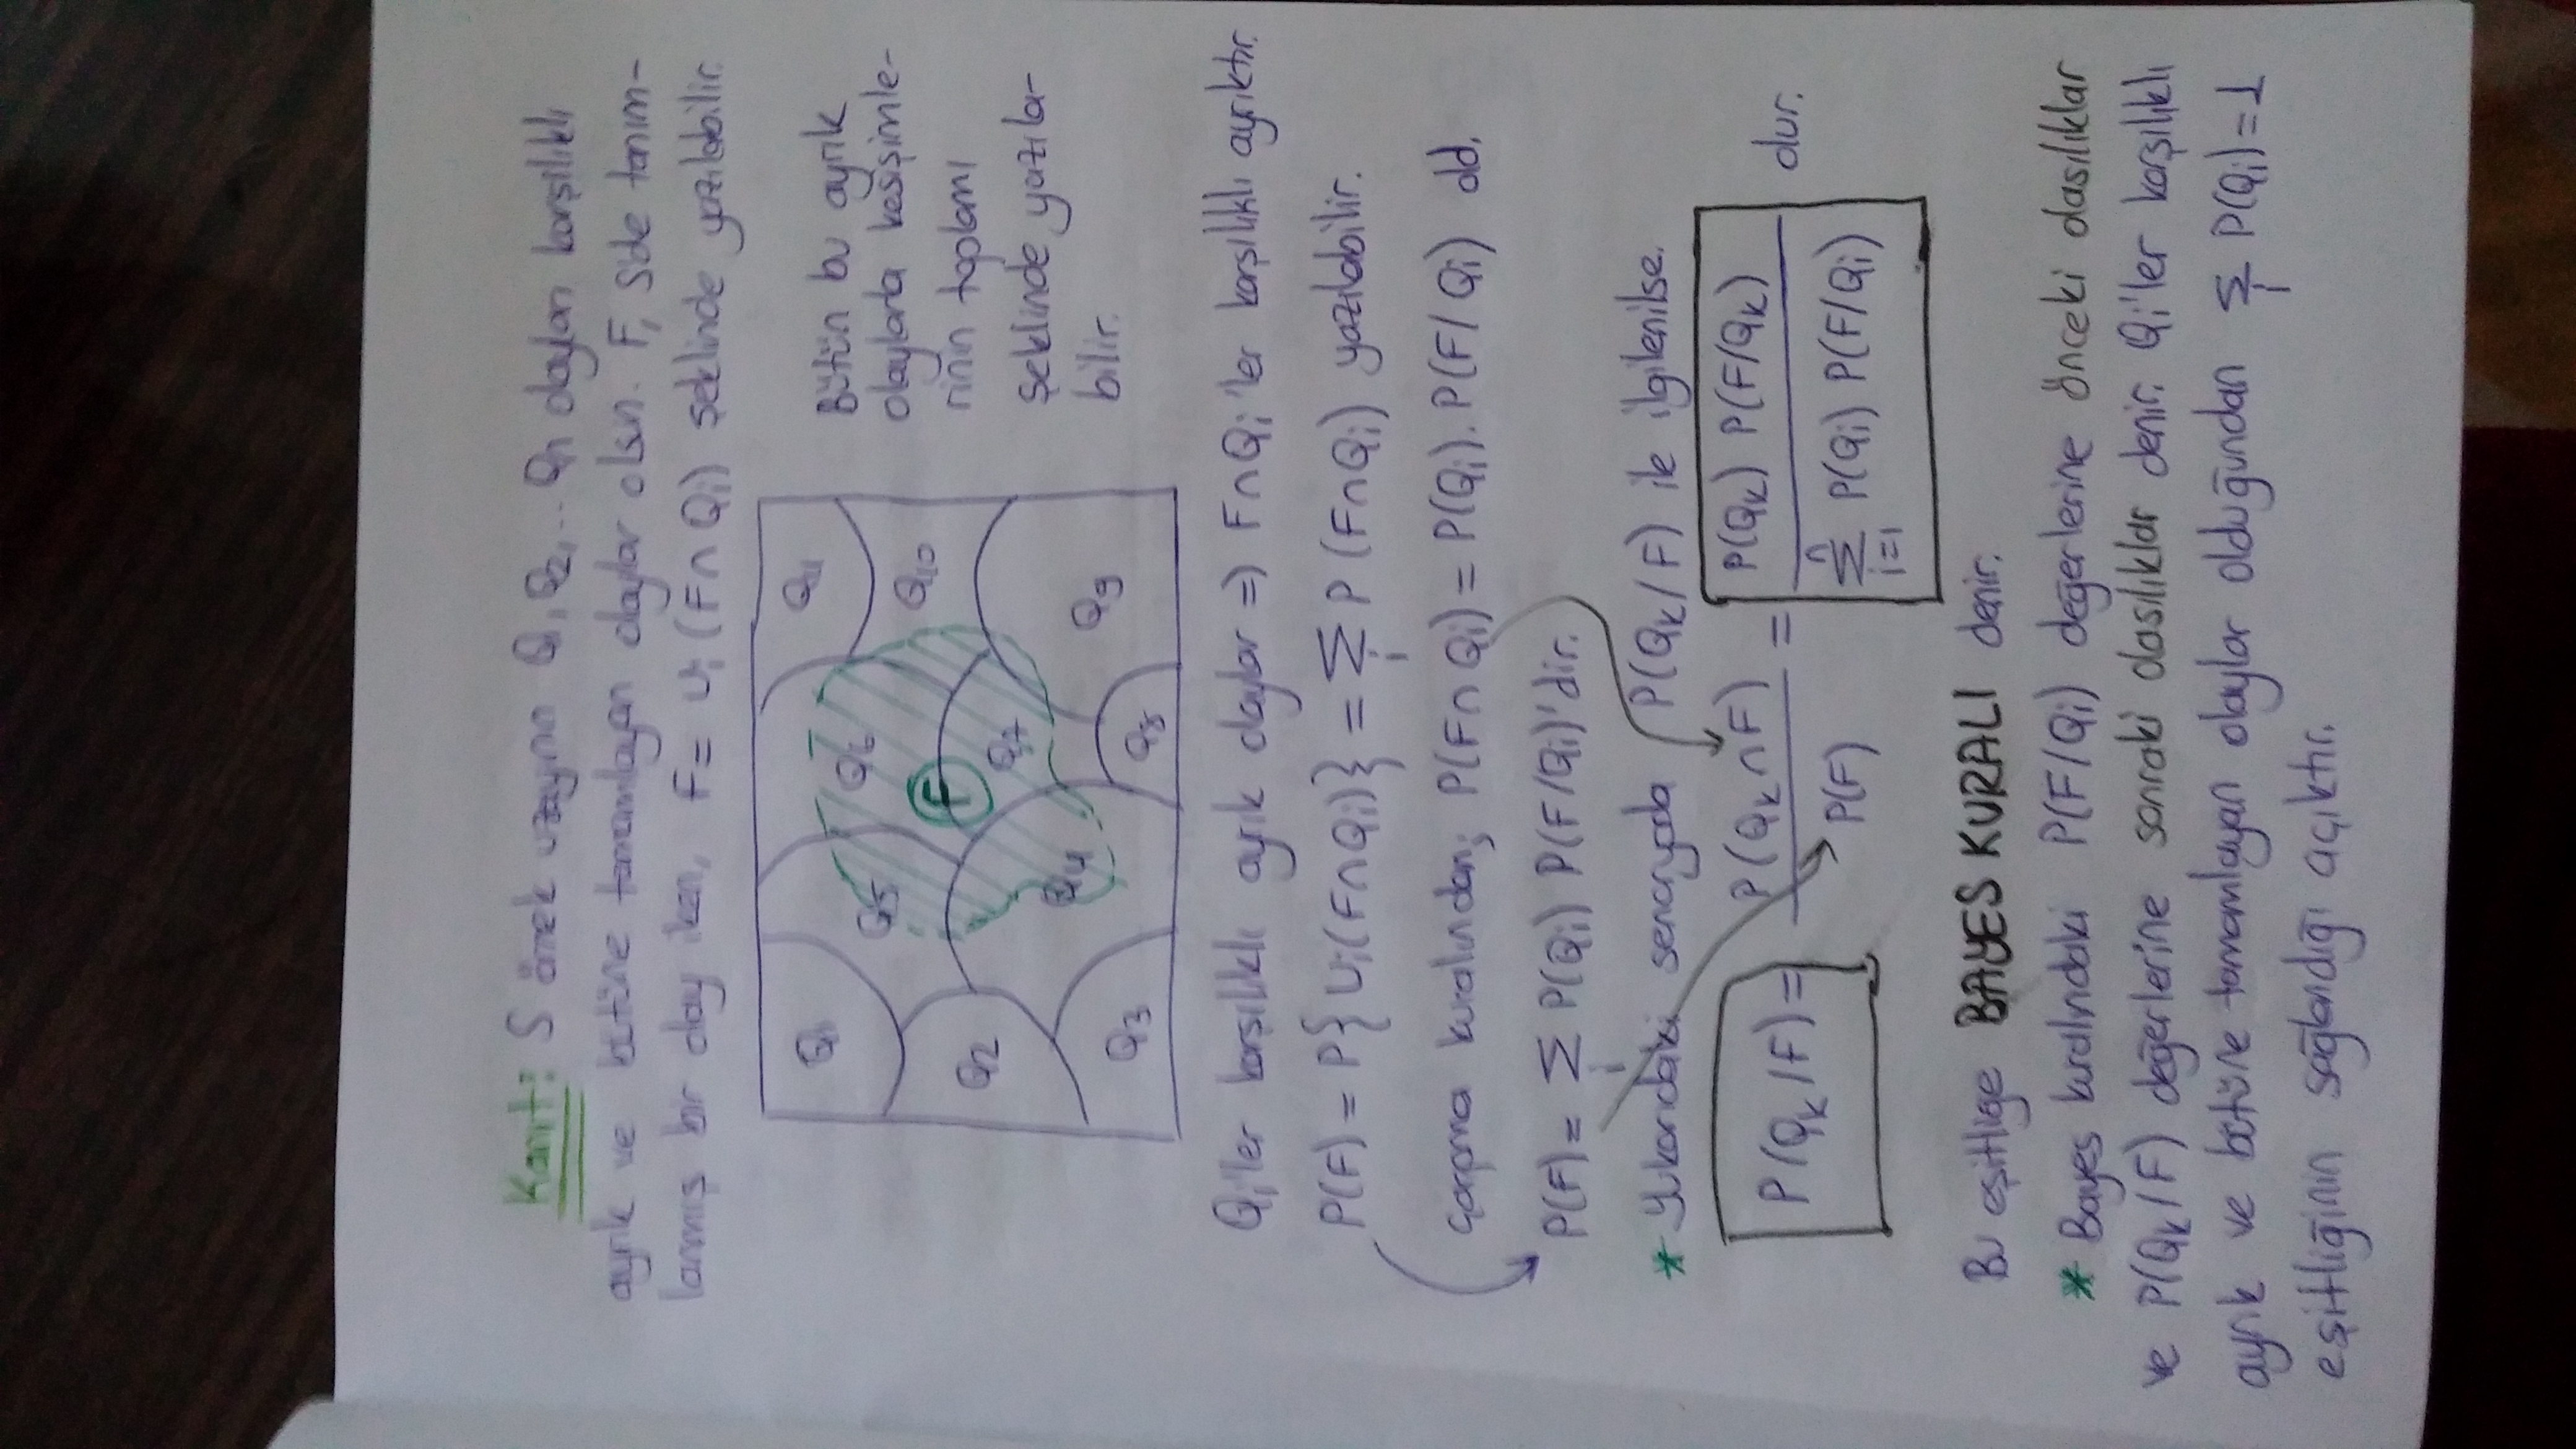 Kanıt: S örnek uzayının Q1, Q2, ... Qn olayları karşılıklı
ayrık ve bütüne tamamlayan olaylar olsun. F, S'de tanım-
lanmış bir olay iken, F = ∪i (F∩Qi) şeklinde yazılabilir.
Q1
Q5
Q6
Q11
Q10
F
Q2
Q7
Q4
Q9
Q3
Q8
Bütün bu ayrık
olaylarla kesişimle-
rinin toplamı
şeklinde yazıla-
bilir.
Qi'ler karşılıklı ayrık olaylar => F∩Qi'ler karşılıklı ayrıktır.
P(F) = P{∪i(F∩Qi)} = Σi P(F∩Qi) yazılabilir.
Çarpma kuralından; P(F∩Qi) = P(Qi). P(F/Qi) old.
P(F) = Σi P(Qi) P(F/Qi)'dir.
* Yukarıdaki senaryoda P(Qk/F) ile ilgilenilse.
P(Qk/F) = P(Qk∩F) / P(F) = P(Qk) P(F/Qk) / Σ i=1 n P(Qi) P(F/Qi) dur.
Bu eşitliğe BAYES KURALI denir.
* Bayes kuralındaki P(F/Qi) değerlerine önceki olasılıklar
ve P(Qk/F) değerlerine sonraki olasılıklar denir. Qi'ler karşılıklı
ayrık ve bütüne tamamlayan olaylar olduğundan Σi P(Qi)=1
eşitliğinin sağlandığı açıktır.